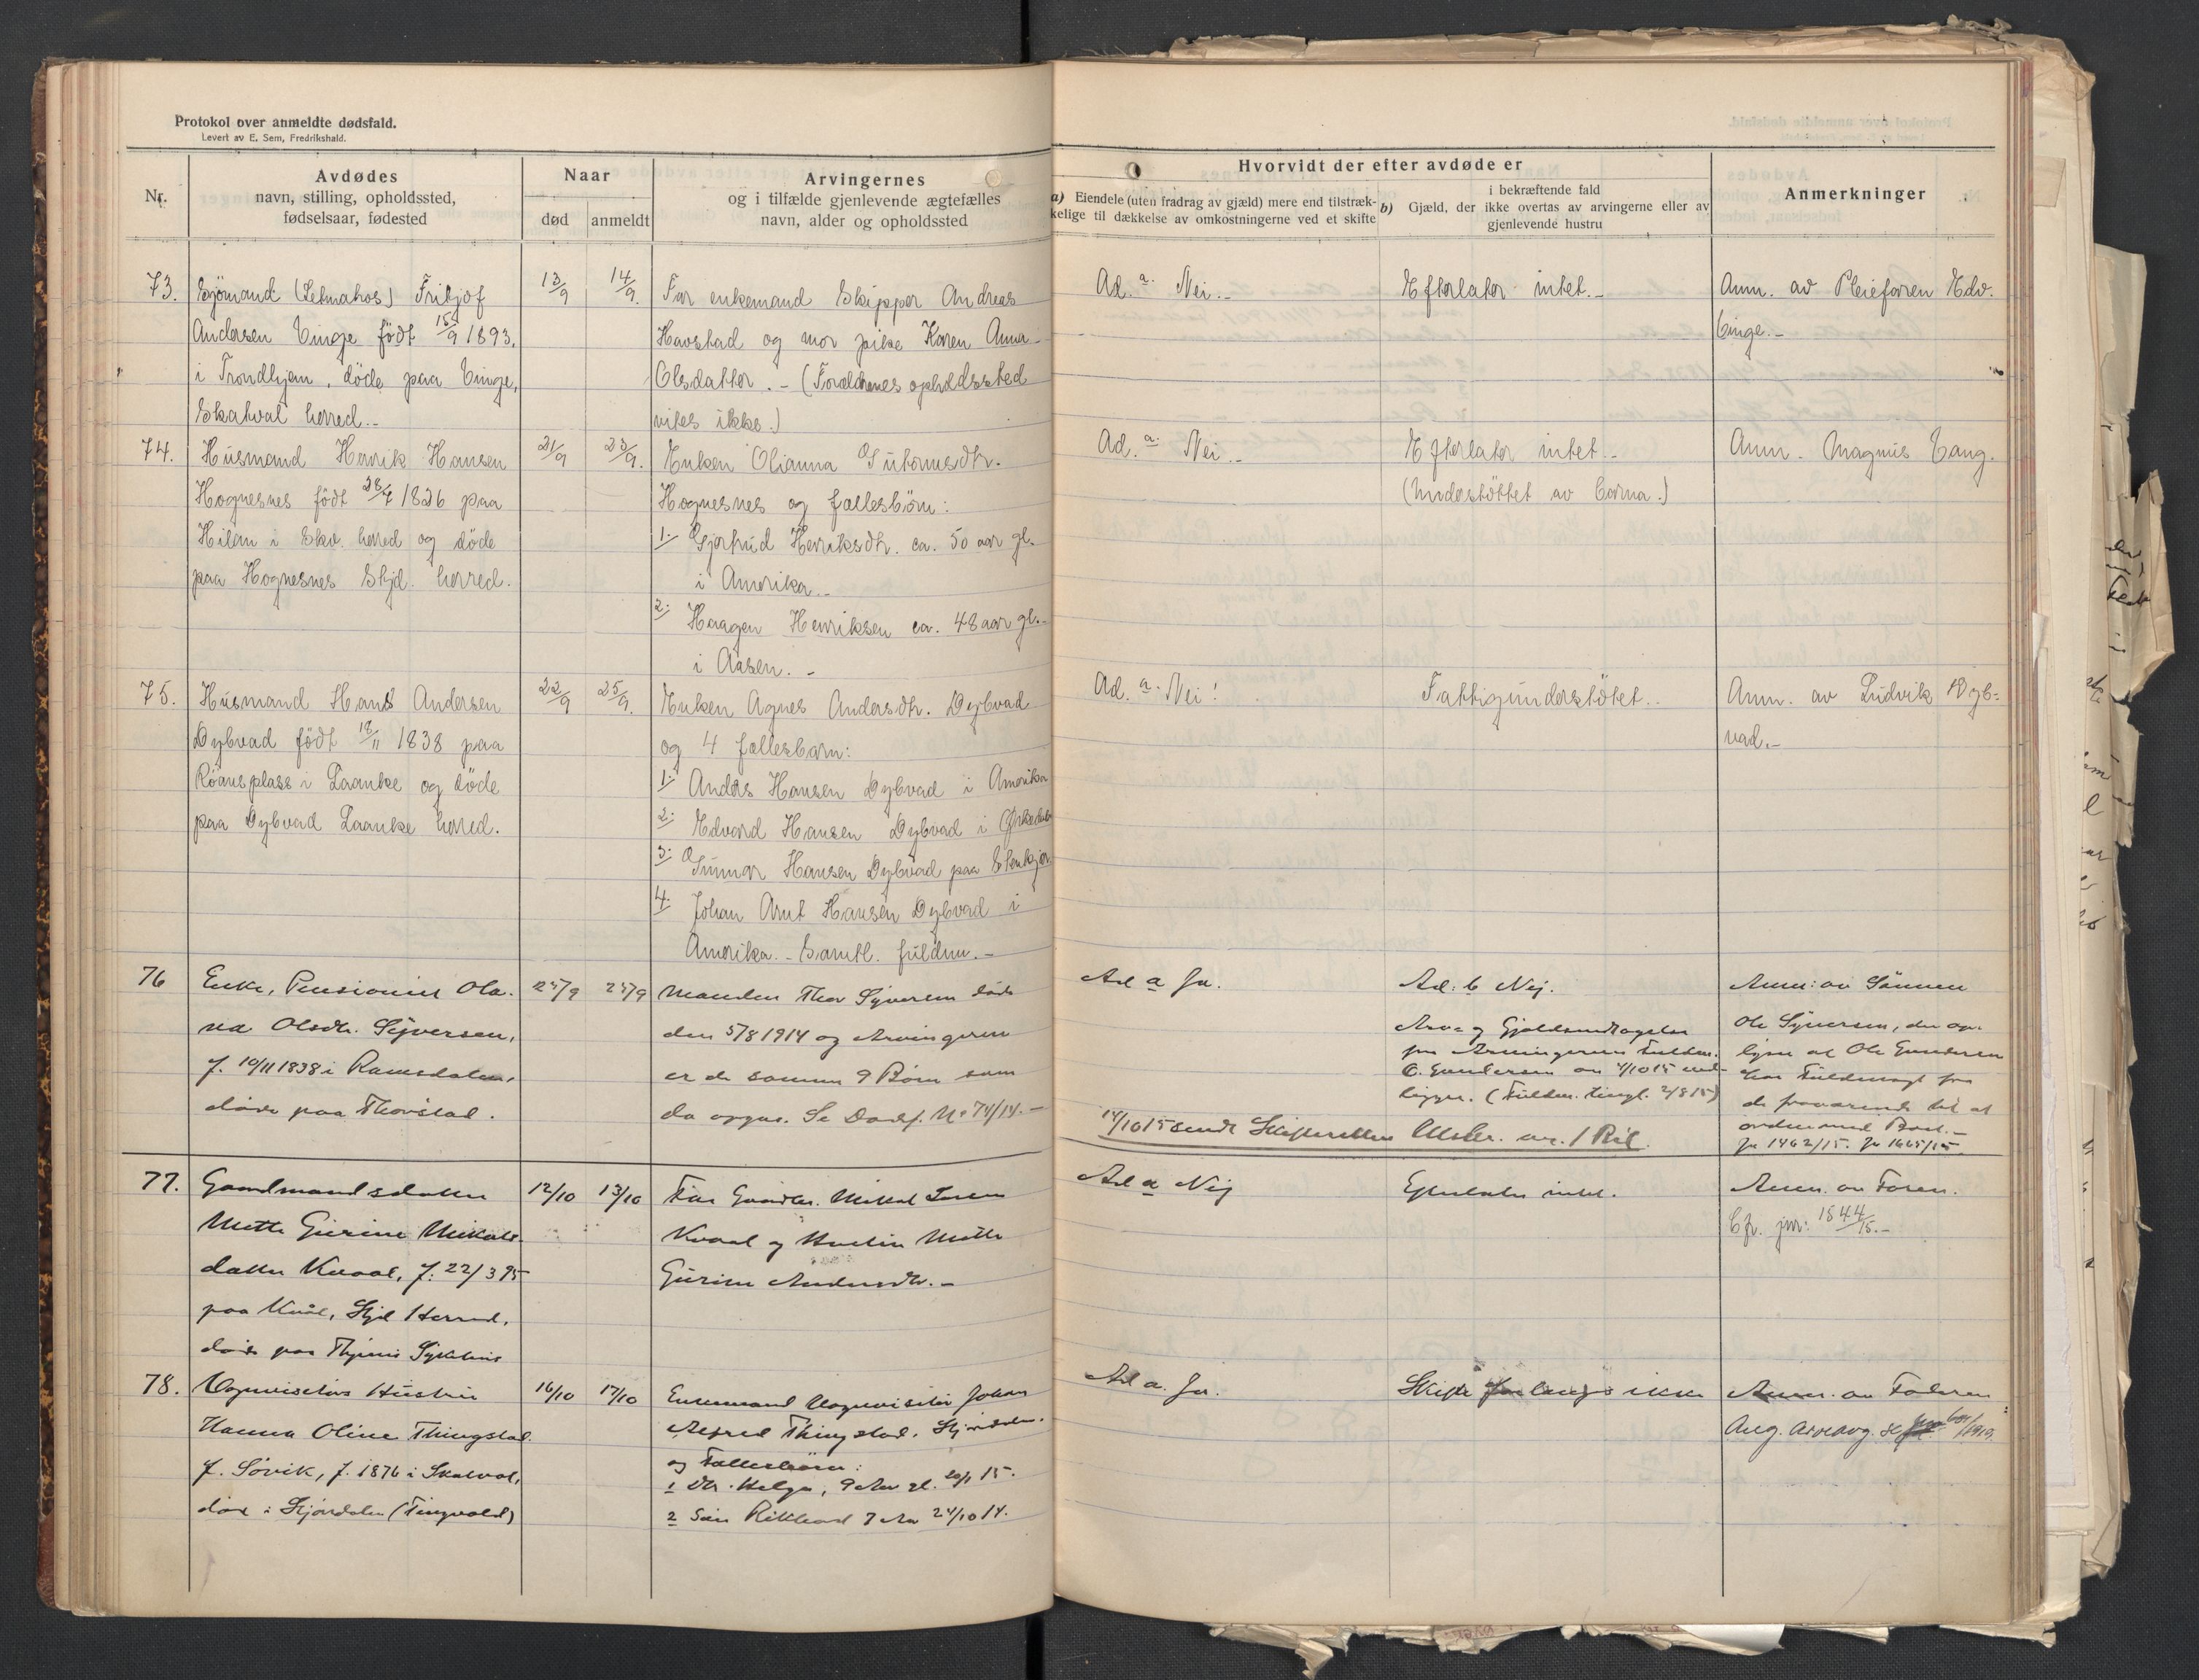 Protokol over anmeldte dødsfald.
Levert av E. Sem, Fredrikshald.
Nr.
Avdødes
navn, stilling, opholdssted,
fødselsaar, fødested
Naar
død
anmeldt
Arvingernes
og i tilfælde gjenlevende ægtefælles
navn, alder og opholdssted
Hvorvidt der efter avdøde er
a) Eiendele (uten fradrag av gjæld) mere end tilstræk-
kelige til dækkelse av omkostningerne ved et skifte
b) Gjæld, der
i bekræftende fald
ikke overtas av arvingerne eller av
gjenlevende hustru
Anmerkninger
73.
Sjömand Fritjof
Andersen Vinge født 15/9 1893,
i Trondhjem, døde paa Vinge,
Skatval herred.-
13/9
14/9.
Far enkemand Skipper Andreas
Havstad og mor pike Karen Anna
Olsdatter. - (Forældrenes opholdssted
vites ikke.)
Ad. a. Nei.-
Efterlater intet.-
Anm. av Pleiefaren Edv.
Vinge.-
74.
Husmand Henrik Hansen
Hognesnes født 28/4 1826 paa
Hilan i Skv. herred og døde
paa Hognesnes Stjd. herred.
21/9
23/9.
Enken Olianna Guttormsdtr.
Hognesnes og fællesbörn:
1. Gjertrud Henriksdtr. ca. 50 aar gl.
i Amerika.-
2. Haagen Henriksen ca. 48 aar gl.-
i Aasen.-
Ad. a. Nei.-
Efterlater intet.-
(Understöttet av .)
Anm. Magnus Vang.
75.
Husmand Hans Andersen
Dybvad född 18/11 1838 paa
Röansplass i Laanke og døde
paa Dybvad Laanke herred.
22/9
25/9.
Enken Agnes Andersdtr. Dybvad
og 4 fællesbarn:
1. Anders Hansen Dybvad i Amerika
2. Edvard Hansen Dybvad i
3. Gunnar Hansen Dybvad paa Stenkjær
4. Johan Arnt Hansen Dybvad i
Amerika.- Samtl. fuldm.-
Ad. a. Nei!
Fattigunderstötet..
Anm. av Ludvik Dyb=
vad.-
76
Enke, Pensionist Ola-
va Olsdtr. Syversen,
f. 19/11 1838 i Romsdalen,
döde paa Thorstad.
25/9
25/9
Manden Thor Syversen döde
den 5/8 1914 og Arvingerne
er de samme 9 Börn som
da opgav. Se Dødsf. No 74/14.-
Ad a Ja.
Ad: b Nej.
Arve og Gjældsvedtagelse
fra Arvingernes Fuldm.
O. Gundersen av 4/10 15 ved-
ligger. (Fuldm. tingl. 2/8 15)
14/10 15 sendt Skifteretten m. 1 Bil.
Anm: av Sönnen
Ole Syversen, der op-
lyser at Ole Gundersen
har Fuldmagt fra
de fraværende til at
ordne med Boet.-
Jr 1462/15. Jr 1665/15
77.
Gaardmandsdatter
Mette Gurine Mikals-
datter Kvaal, f: 22/3 95
paa Kvål, Stjd Herred,
döde paa Thjems Sykehus
12/10
13/10
Far Gaardbr. Mikal
Kvaal og Hustru Mette
Gurine Andersdtr.-
Ad a Nej
Efterlater intet.
Anm. av Faren.
Cfr. jnr: 1544/15.-
78.
Vognvisitørs Hustru
Hanna Oline Thingstad
f. Sörvik, f. 1876 i Skatval,
döde i Stjördalen (Tingvold)
16/10
17/10
Enkemand Vognvisitör Johan
Alfred Thingstad, Stjørdalen.
og Fællesbörn:
1 Dtr. Helga, 9 Aar gl. 15.
2 Sön Rikhard 7 Aar 24/10 14.
Ad a. Ja.
Skifte forlanges ikke
Anm. av Faderen
Ang. Arveavg. se